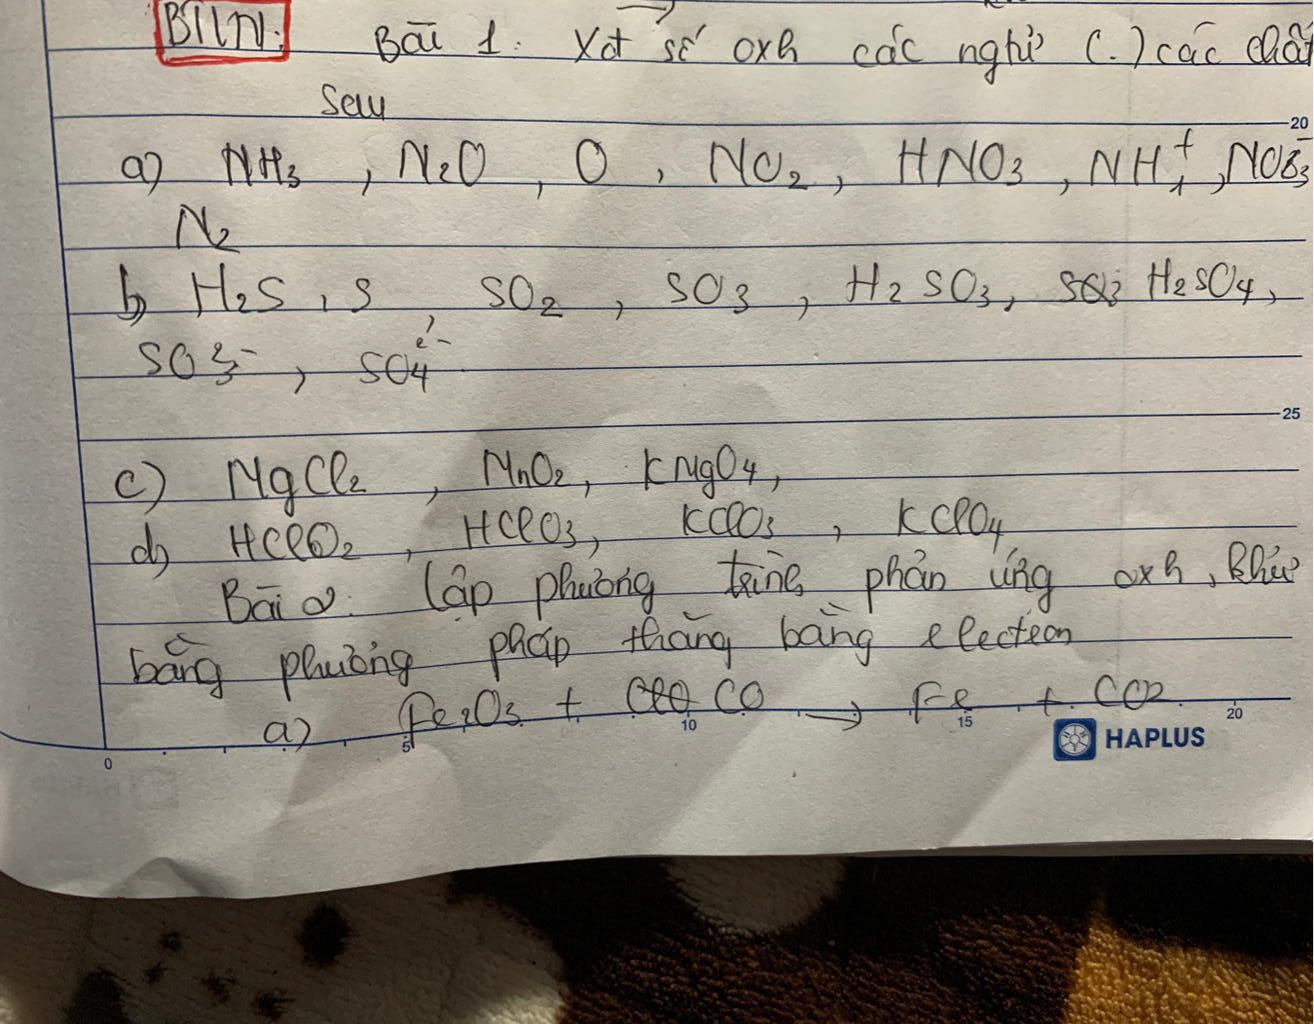 BTVN: Bài 1: Xđ số oxh các ngtử (.) các chất
sau
20
a) NH3, N2O, O, NO2, HNO3, NH4+, NO3-
N2
b) H2S, S, SO2, SO3, H2SO3, H2SO4,
SO3 2-, SO4 2-
25
c) MgCl2, MnO2, KMgO4,
d) HClO2, HClO3, KClO3, KClO4
Bài 2: Lập phương trình phản ứng oxh, khử
bằng phương pháp thăng bằng electron
a) Fe2O3 + CO → Fe + CO2
0 5 10 15 20
HAPLUS